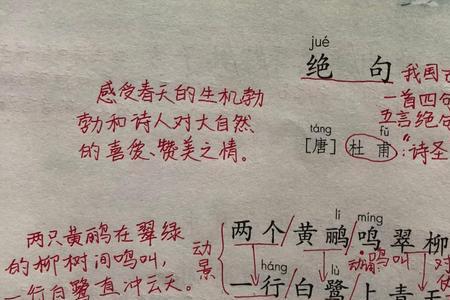 jué
绝 句
感受春天的生机勃
勃和诗人对大自然
的喜爱、赞美之情。
我国古
一首四句
五言绝句
táng fǔ
[唐] 杜 甫
"诗圣
lí míng
两 个/黄 鹂/鸣 翠 柳
两只黄鹂在翠绿
的柳树间鸣叫,
一行白鹭直冲云天。
动景
动
鸣叫
对
háng lù
一 行/白 鹭/上 青